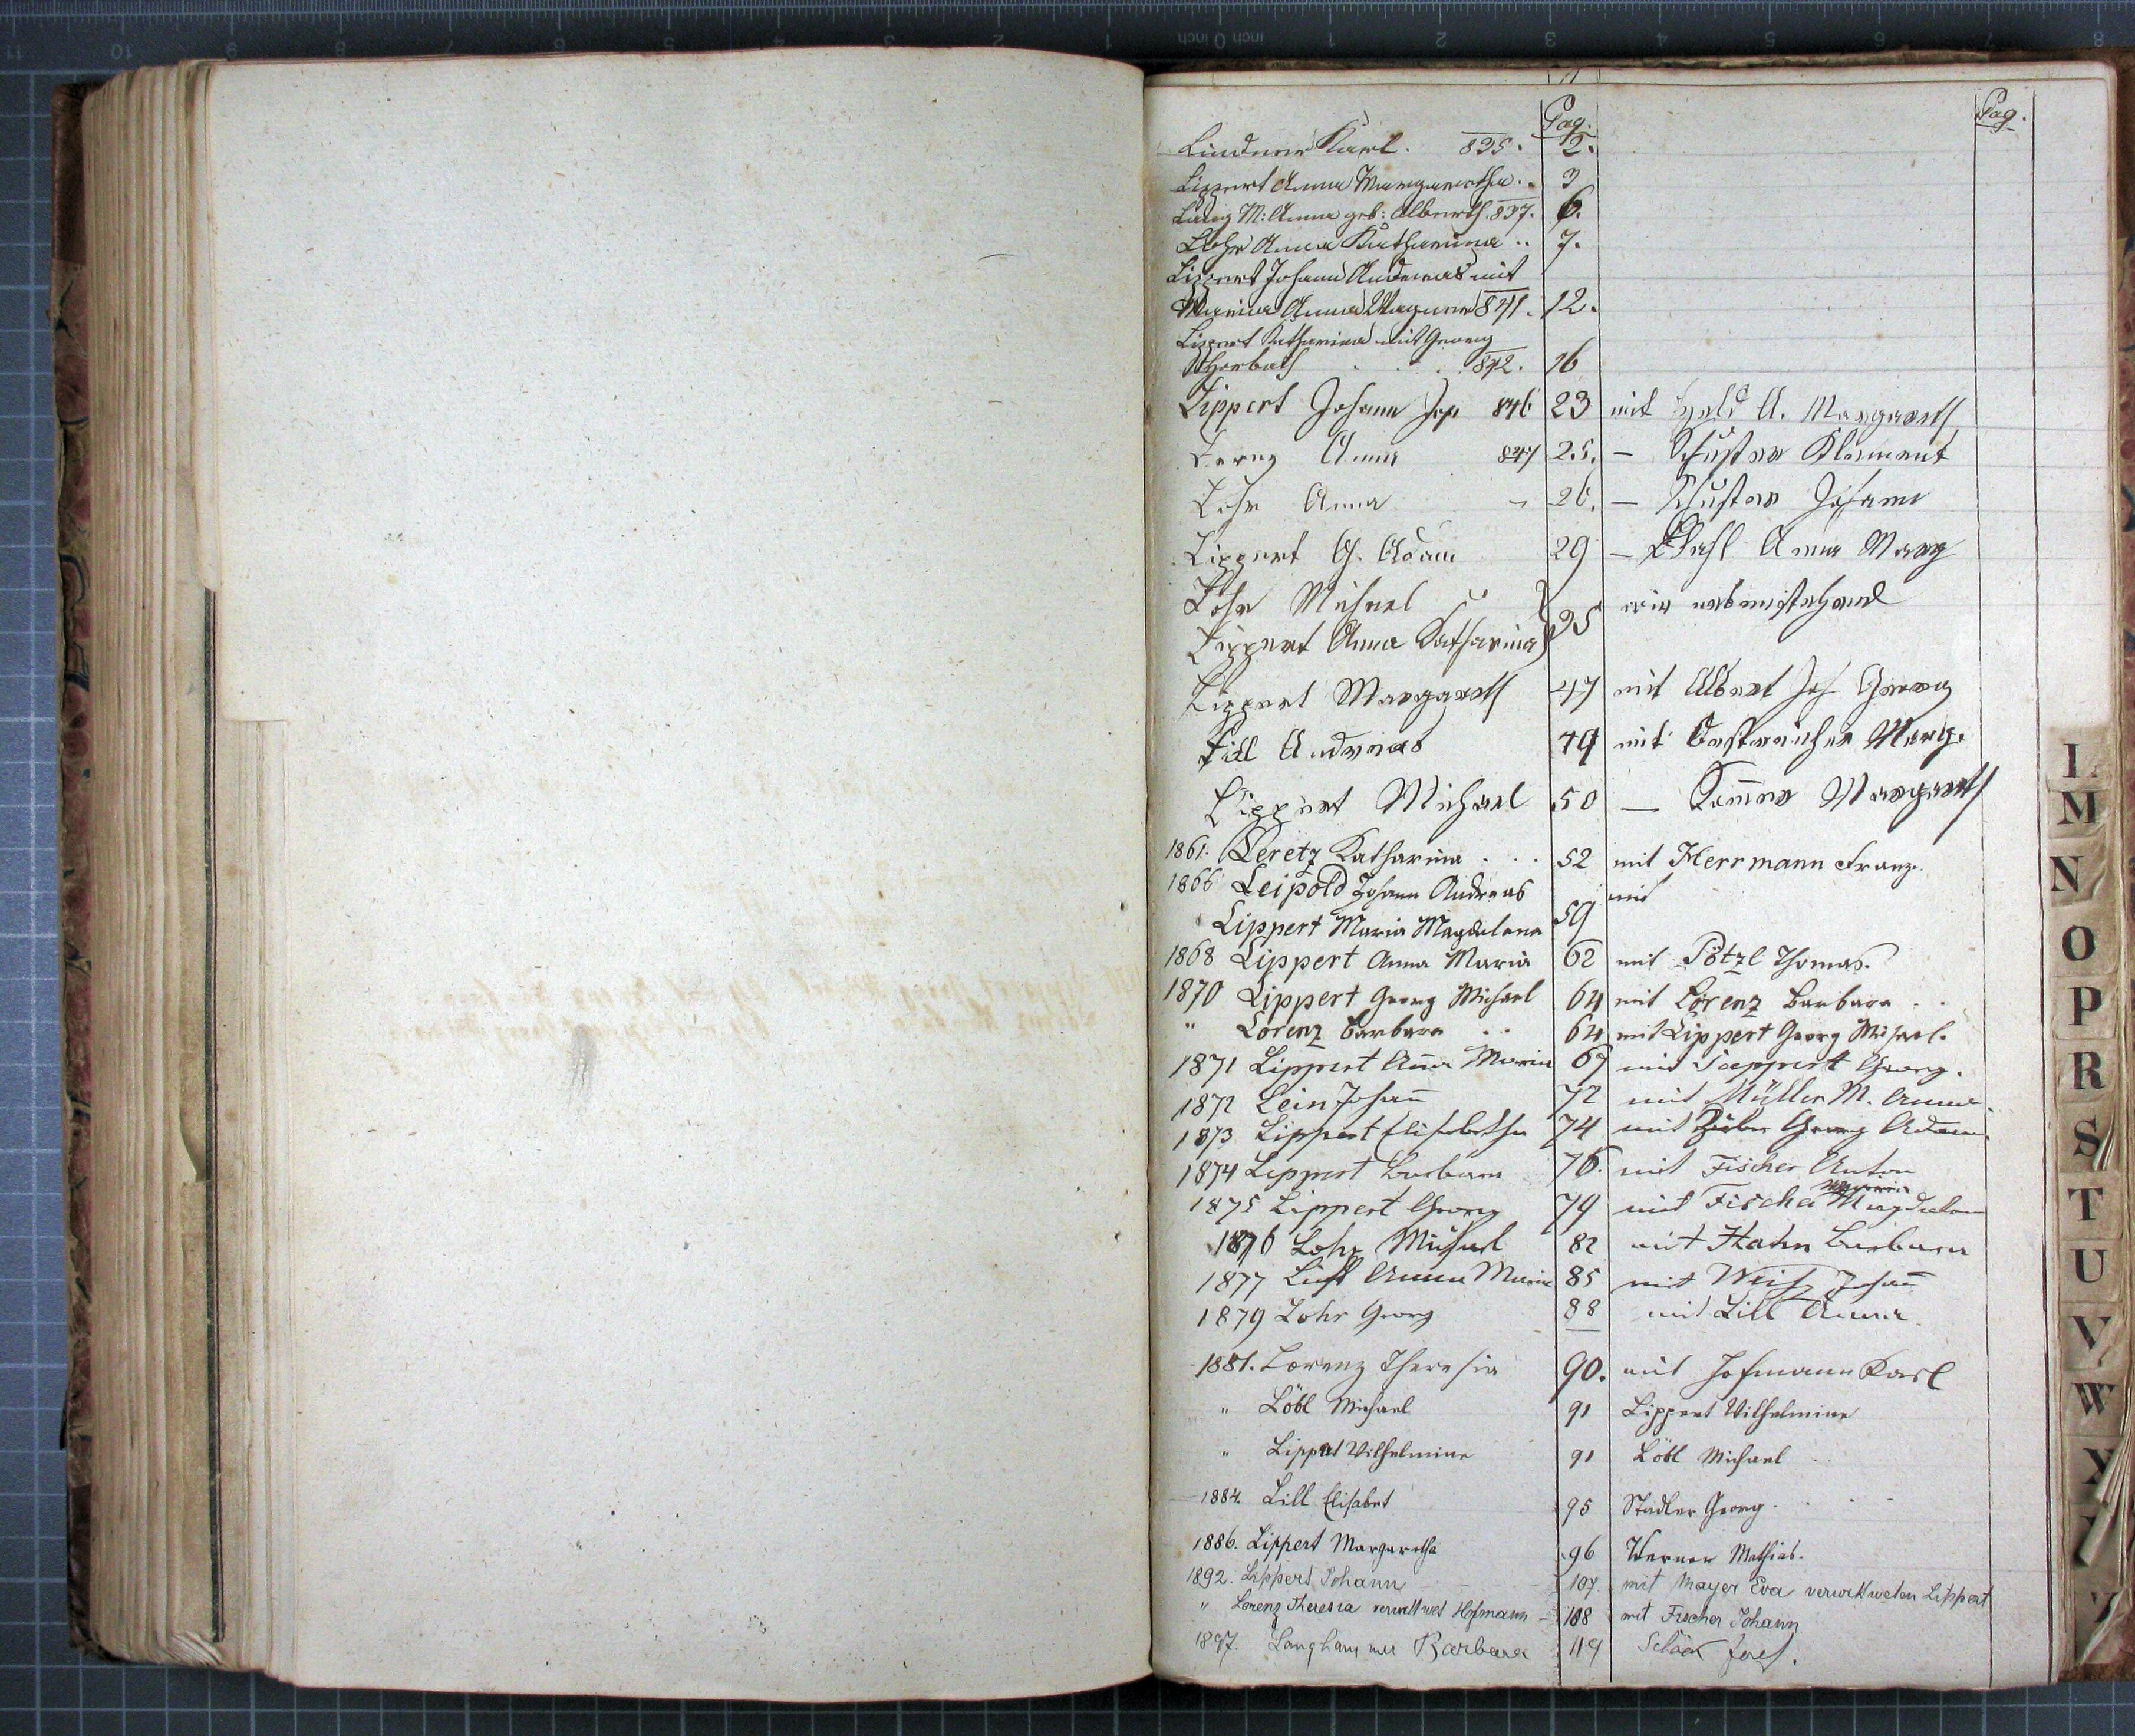 Pag. Pag.
Lindner Karl. 835. 2.
Lippert Anna Margaretha . . 3
Lang M: Anna geb: Alberth 837. 6.
Lohr Anna Katharina . . 7.
Lippert Johann Andreas mit
Maria Anna Wagner 841. 12.
Lippert Katharina mit Georg
842. 16
Lippert Johann Jos 846 23 mit Held A. Margareth
Anna 847 25. — Schuster Klement
Lohr Anna " 26. — Schuster Johann
Lippert G. Adam 29 — Anna Marg
Lohr Michael } 35 wie nebenstehend
Lippert Anna Katharina
Lippert Margareth 47 mit Albert Joh Georg
Lill Andreas 49 mit Oestreicher Marg.
Lippert Michael 50 — Margareth
1861. Leretz Katharina . . . 52 mit Herrmann Franz.
1866 Leipold Johann Andreas mit
Lippert Maria Magdalena 59
1868 Lippert Anna Maria 62 mit Pötzl Thomas.
1870 Lippert Georg Michael 64 mit Lorenz Barbara . .
" Lorenz Barbara . . 64 mit Lippert Georg Michael.
1871 Lippert Anna Maria 67 mit Georg.
1872 Lein Johann 72 mit Müller M. Anna
1873 Lippert Elisabetha 74 mit Georg Adam
1874 Lippert Barbara 76. mit Fischer Anton
1875 Lippert Georg 79 mit Fischer Magdalena
1876 Lohr Michael 82 mit Hahn Barbara
1877 Anna Maria 85 mit Weiß Johann
1879 Lohr Georg 88 mit Lill Anna
1881. Lorenz Theresia 90. mit Hofmann Karl
" Löbl Michael 91 Lippert Wilhelmine
" Lippert Wilhelmine 91 Löbl Michael
1884. Lill Elisabet 95 Stadler Georg
1886. Lippert Margaretha 96 Werner Mathias.
1892. Lippert Johann 107. mit Mayer Eva verwittweten Lippert
" Lorenz Theresia verwittwet Hofmann — 108 mit Fischer Johann
1897. Langhammer Barbara 119 Josef.
L
M
N
O
P
R
S
T
U
V
W
X